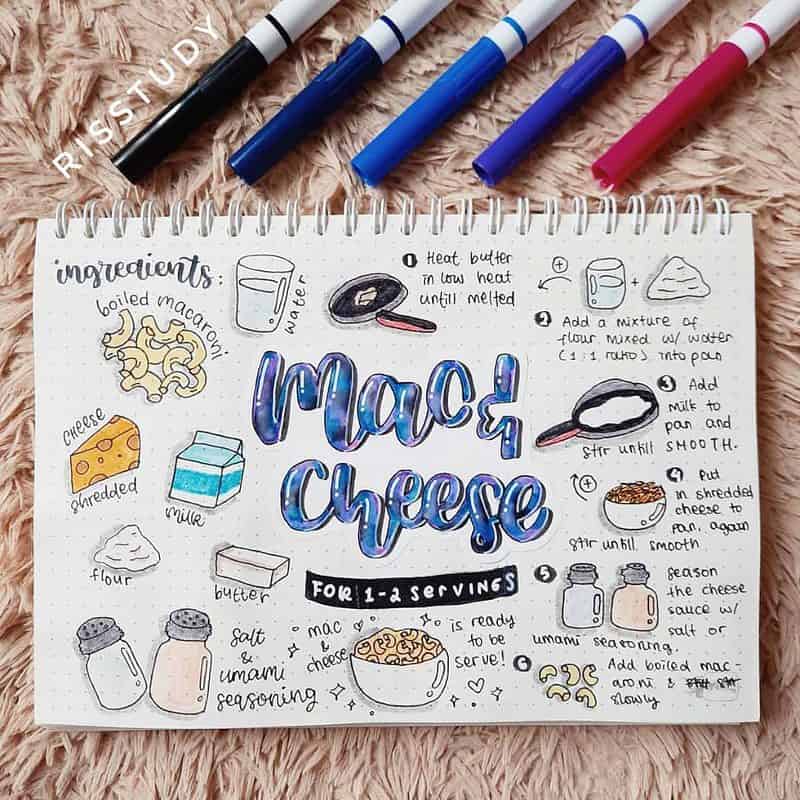 RISSTUDY
ingredients:
boiled macaroni
water
cheese
shredded
milk
flour
butter
salt
&
umami
seasoning
Mac &
Cheese
FOR 1-2 SERVINGS
1 Heat butter
in low heat
untill melted
2 Add a mixture of
flour mixed w/ water
(1:1 ratio) into pan
3 Add
milk to
pan and
stir untill SMOOTH.
4 Put
in shredded
cheese to
pan. again
stir untill smooth
5 season
the cheese
sauce w/
salt or
umami seasoning.
6 Add boiled mac-
aroni &
slowly
mac
&
cheese
is ready
to be
serve!